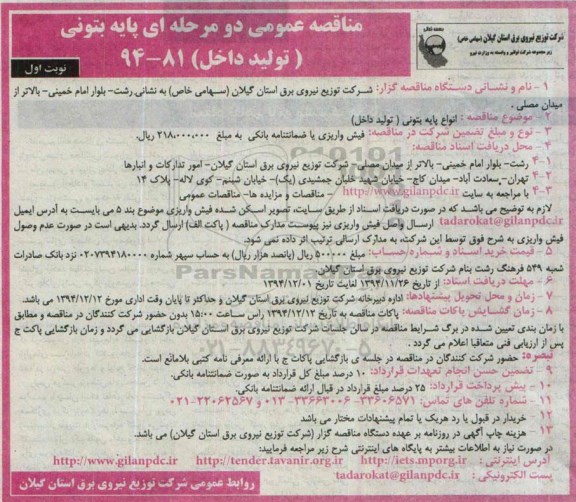 مناقصه عمومی دو مرحله ای پایه بتونی
( تولید داخل) ۸۱-۹۴
نوبت اول
شرکت توزیع نیروی برق استان گیلان (سهامی خاص)
۱ - نام و نشانی دستگاه مناقصه گزار: شرکت توزیع نیروی برق استان گیلان (سهامی خاص) به نشانی رشت- بلوار امام خمینی- بالاتر از
میدان مصلی .
۲- موضوع مناقصه : انواع پایه بتونی ( تولید داخل)
۳ - نوع و مبلغ تضمین شرکت در مناقصه: فیش واریزی یا ضمانتنامه بانکی به مبلغ ۲۱۸،۰۰۰،۰۰۰ ریال.
۴ - محل دریافت اسناد مناقصه:
۴-۱ رشت- بلوار امام خمینی- بالاتر از میدان مصلی – شرکت توزیع نیروی برق استان گیلان- امور تدارکات و انبارها
۴-۲ تهران-سعادت آباد- میدان کاج- خیابان شهید خلبان جمشیدی (یک)- خیابان شبنم- کوی لاله- پلاک ۱۴
۴-۳ با مراجعه به سایت http://www.gilanpdc.ir - مناقصات و مزایده ها- مناقصات عمومی
لازم به توضیح می باشد که در صورت دریافت اسناد از طریق سایت، تصویر اسکن شده فیش واریزی موضوع بند ۵ می بایست به آدرس ایمیل
tadarokat@gilanpdc.ir ارسال واصل فیش واریزی نیز پیوست مدارک مناقصه ( پاکت الف) ارسال گردد. بدیهی است در صورت عدم وصول
فیش واریزی به شرح فوق توسط این شرکت، به مدارک ارسالی ترتیب اثر داده نمی شود.
۵ - قیمت خرید اسناد و شماره حساب: مبلغ ۵۰۰۰۰۰ ریال (پانصد هزار ریال) به حساب سپهر شماره ۰۲۰۷۳۹۴۱۸۰۰۰۰ نزد بانک صادرات
شعبه ۵۴۹ فرهنگ رشت بنام شرکت توزیع نیروی برق استان گیلان.
۶ - مهلت دریافت اسناد: از تاریخ ۱۳۹۴/۱۱/۲۶ لغایت تاریخ ۱۳۹۴/۱۲/۰۱
۷ - زمان و محل تحویل پیشنهادها: اداره دبیرخانه شرکت توزیع نیروی برق استان گیلان و حداکثر تا پایان وقت اداری مورخ ۱۳۹۴/۱۲/۱۲ می باشد.
۸ - زمان گشایش پاکات مناقصه: پاکات مناقصه به تاریخ ۱۳۹۴/۱۲/۱۲ راس ساعت ۱۵:۰۰ بدون حضور شرکت کنندگان در مناقصه و مطابق
با زمان بندی تعیین شده در برگ شرایط مناقصه در سالن جلسات شرکت توزیع نیروی برق استان گیلان بازگشایی می گردد و زمان بازگشایی پاکت ج
پس از ارزیابی فنی متعاقبا اعلام می گردد .
تبصره: حضور شرکت کنندگان در مناقصه در جلسه ی بازگشایی پاکات ج با ارائه معرفی نامه کتبی بلامانع است.
۹ - تضمین حسن انجام تعهدات قرارداد: ۱۰ درصد مبلغ کل قرارداد به صورت ضمانتنامه بانکی.
۱۰ - پیش پرداخت قرارداد: ۲۵ درصد مبلغ قرارداد در قبال ارائه ضمانتنامه بانکی.
۱۱ - شماره تلفن های تماس: ۳۳۶۰۶۵۷۱- ۳۳۶۶۳۰۰۶-۰۱۳ و ۲۲۰۶۲۵۶۷-۰۲۱
۱۲ - خریدار در قبول یا رد هریک یا تمام پیشنهادات مختار می باشد
۱۳ - هزینه چاپ آگهی در روزنامه بر عهده دستگاه مناقصه گزار (شرکت توزیع نیروی برق استان گیلان) می باشد.
در صورت نیاز به اطلاعات بیشتر به پایگاه های اینترنتی شرح زیر مراجعه فرمایید:
آدرس اینترنتی : http://iets.mporg.ir http://tender.tavanir.org.ir http://www.gilanpdc.ir
پست الکترونیکی : tadarokat@gilanpdc.ir
روابط عمومی شرکت توزیع نیروی برق استان گیلان
ParsNamad
۰۲۱-۸۸۳۴۹۶۷۰-۵